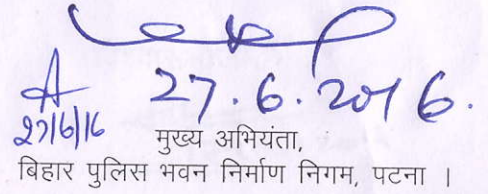 27.6.2016.
27/6/16
मुख्य अभियंता,
बिहार पुलिस भवन निर्माण निगम, पटना ।